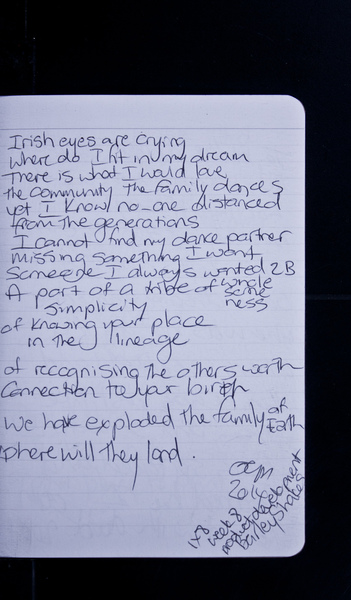 Irish eyes are crying
where do I fit in my dream
There is what I would love
the community the family dances
yet I know no-one distanced
from the generations
I cannot find my dance partner
missing something I want
Someone I always wanted 2B
A part of a tribe of whole
same
ness
simplicity
of knowing your place
in the lineage
of recognising the others worth
Connection to your birth
We have exploded the family of
Earth
where will they land.
2014
week 8
product development